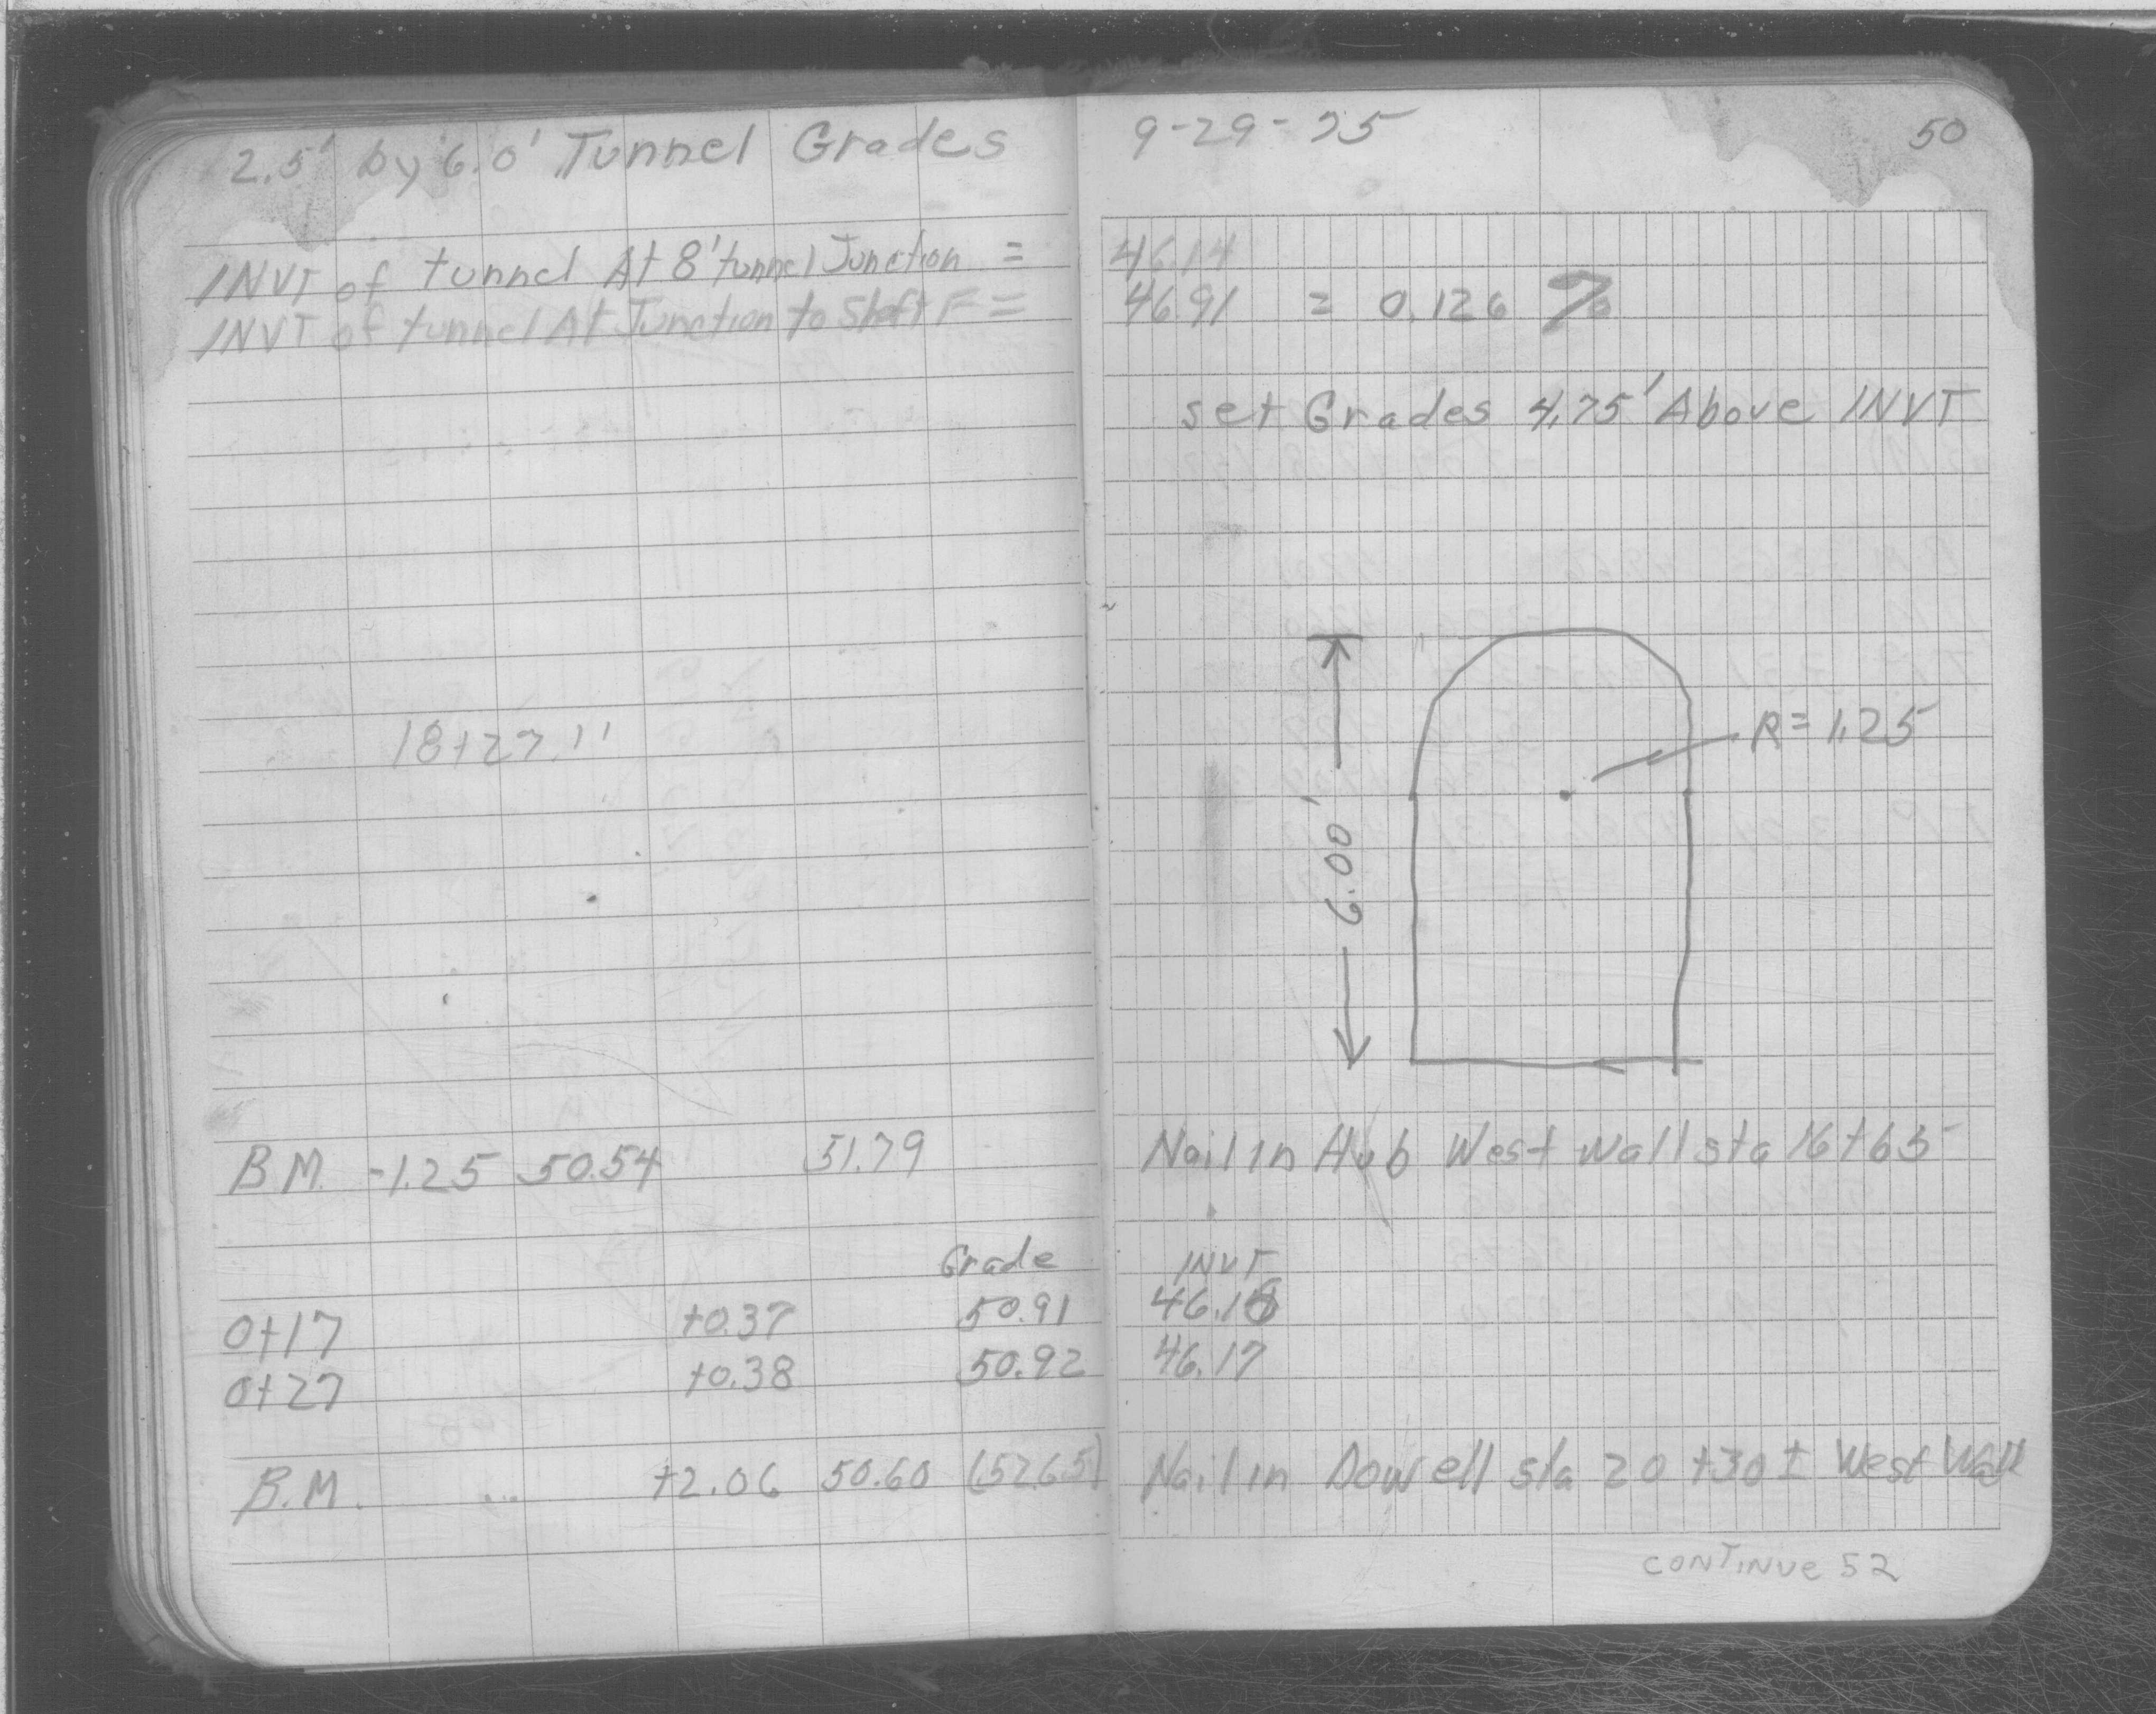 2.5' by 6.0' Tunnel Grades
INVT of tunnel At 8' tunnel Junction =
INVT of tunnel At Junction to Shaft F =
18+27.11
B.M. -1.25 50.54 51.79
Grade
0+17 +0.37 50.91
0+27 +0.38 50.92
B.M. +2.06 50.60 (52.65)
9-29-75 50
46.14
46.91 = 0.126 %
set Grades 4.75' Above INVT
R=1.25
6.00'
Nail in Hub West Wall sta 16+65
INVT
46.16
46.17
Nail in Dowell sta 20+30± West Wall
CONTINUE 52